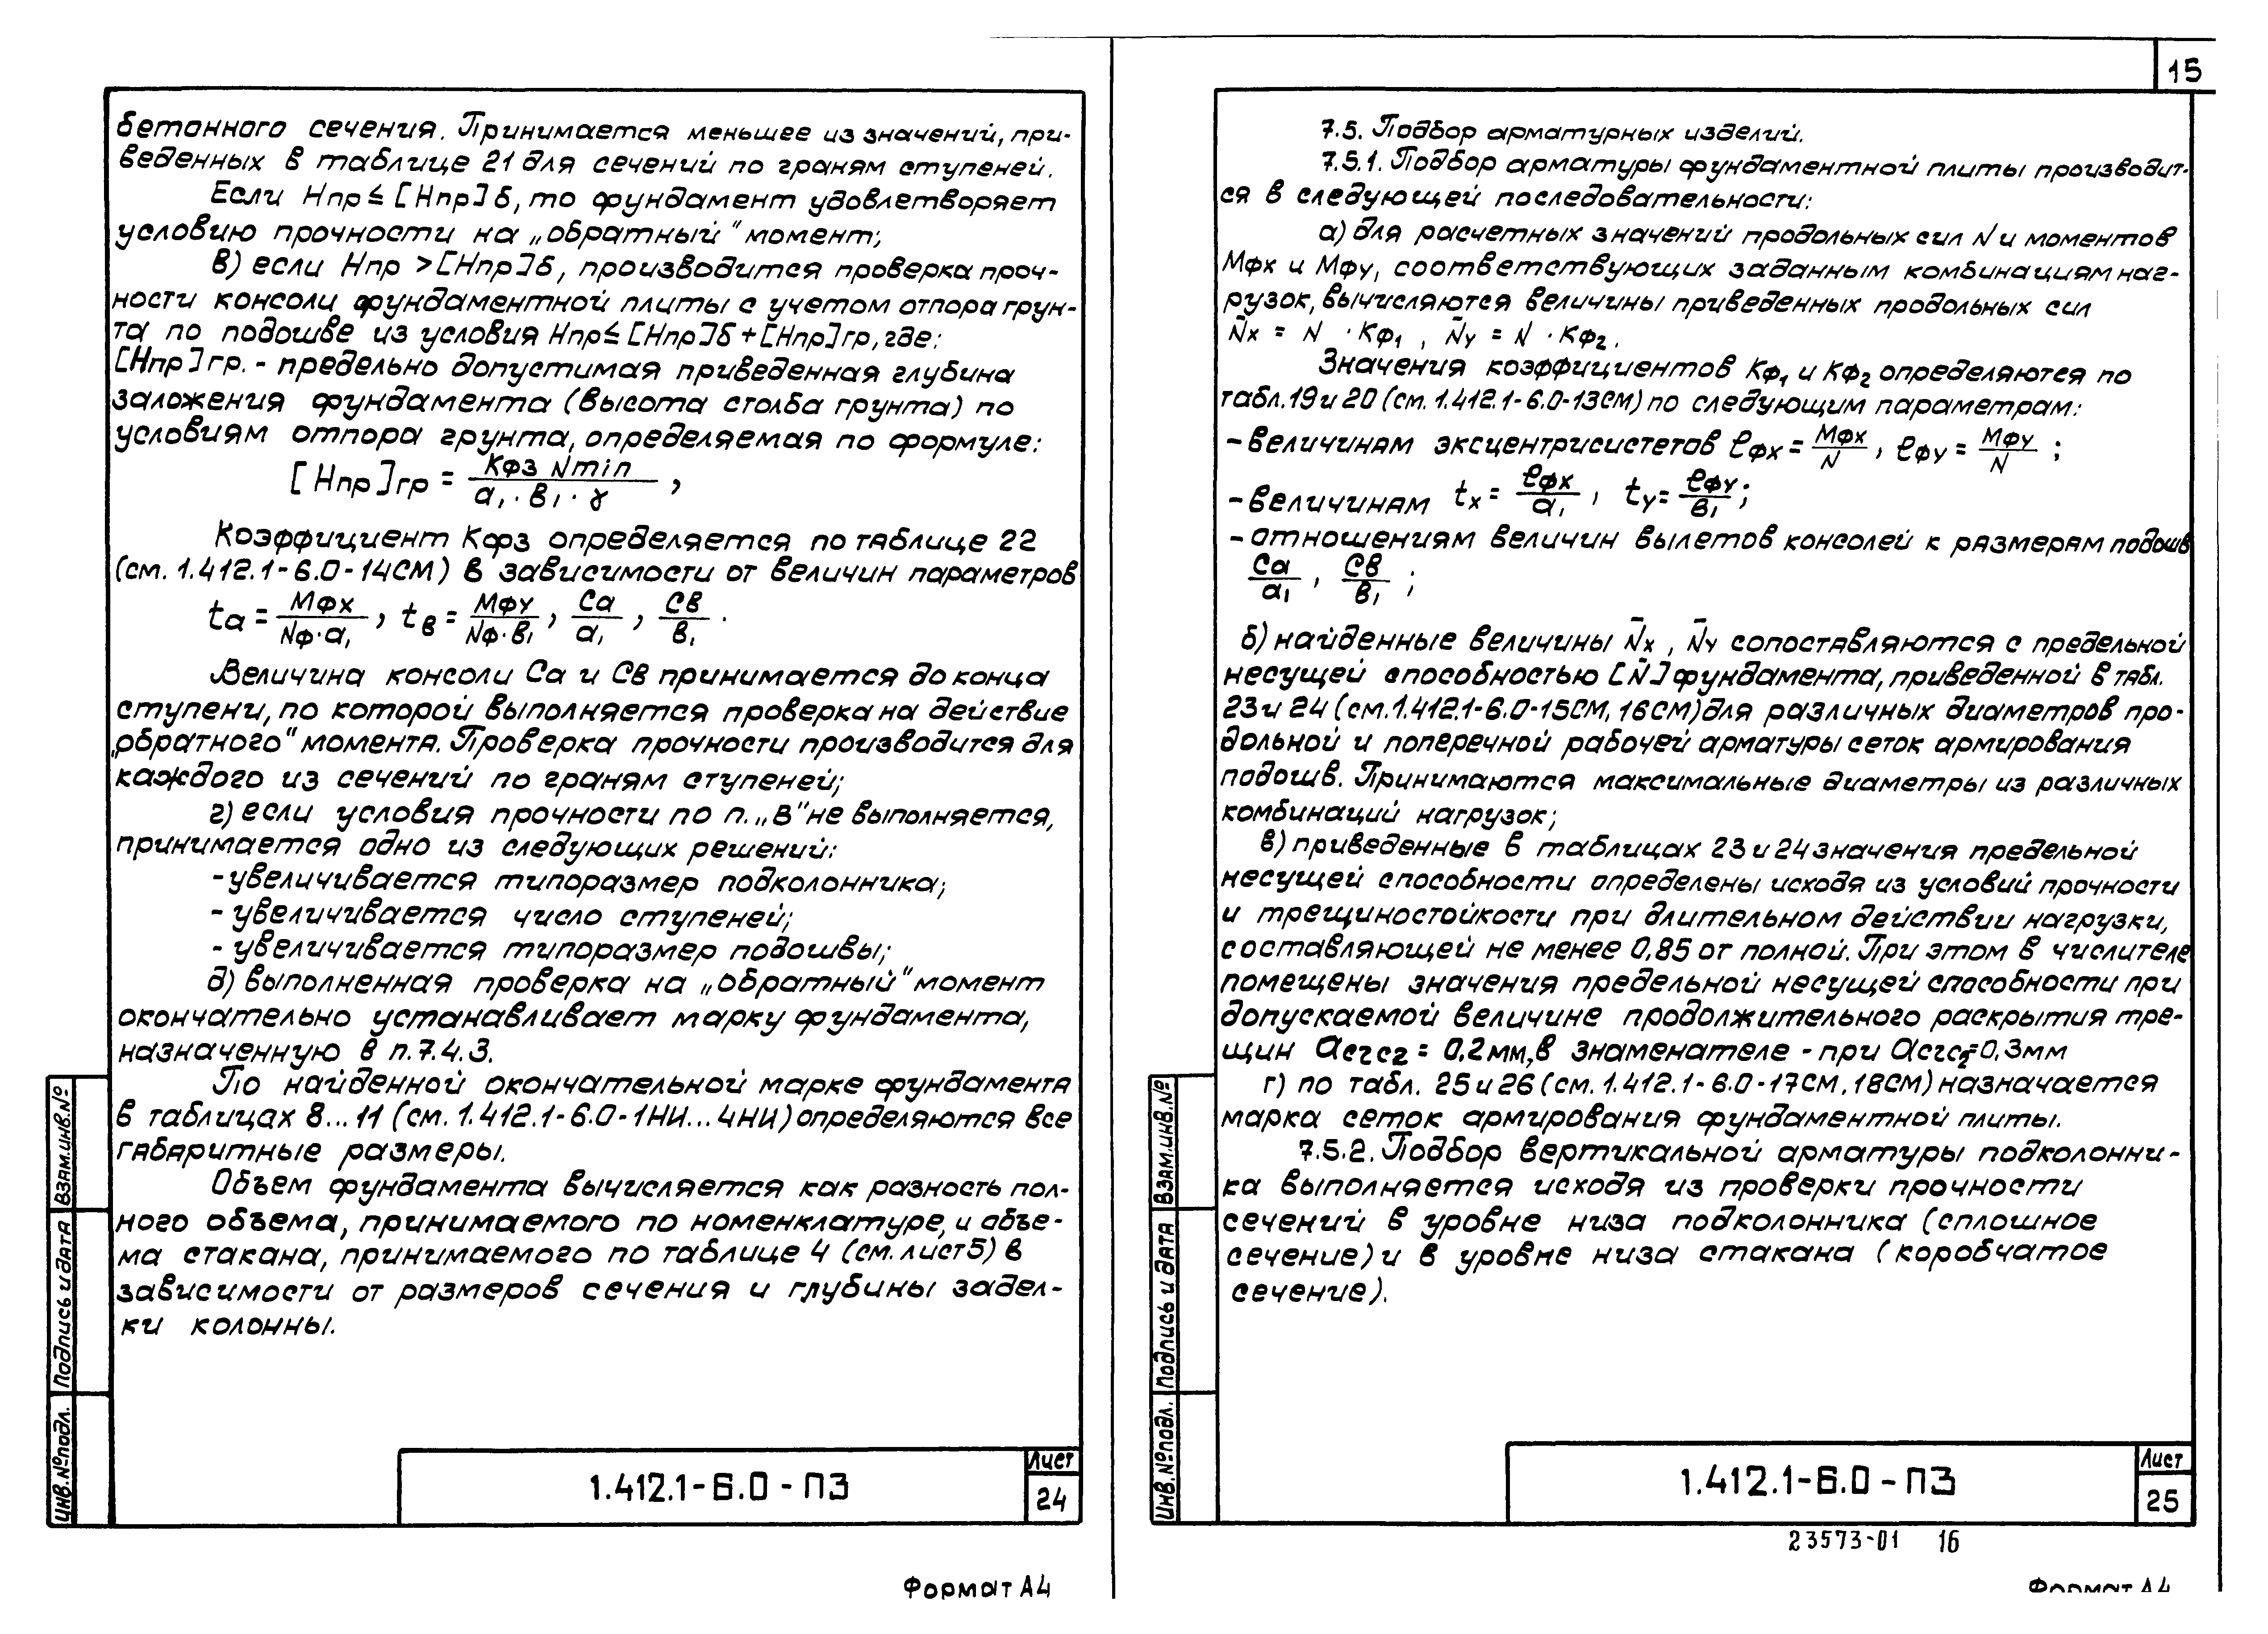 бетонного сечения. Принимается меньшее из значений, при-
веденных в таблице 21 для сечений по граням ступеней.
Если Нпр ≤ [Нпр]б, то фундамент удовлетворяет
условию прочности на „обратный" момент;
в) если Нпр > [Нпр]б, производится проверка проч-
ности консоли фундаментной плиты с учетом отпора грун-
та по подошве из условия Нпр ≤ [Нпр]б + [Нпр]гр, где:
[Нпр]гр. - предельно допустимая приведенная глубина
заложения фундамента (высота столба грунта) по
условиям отпора грунта, определяемая по формуле:
[Нпр]гр = Кф3 Nmin / a₁ · в₁ · γ ,
Коэффициент Кф3 определяется по таблице 22
(см. 1.412.1-6.0-14СМ) в зависимости от величин параметров
ta = Мфх / Nф·a₁ , tв = Мфу / Nф·в₁ , Са / a₁ , Св / в₁ .
Величина консоли Са и Св принимается до конца
ступени, по которой выполняется проверка на действие
„обратного" момента. Проверка прочности производится для
каждого из сечений по граням ступеней;
г) если условия прочности по п. „в" не выполняется,
принимается одно из следующих решений:
- увеличивается типоразмер подколонника;
- увеличивается число ступеней;
- увеличивается типоразмер подошвы;
д) выполненная проверка на „обратный" момент
окончательно устанавливает марку фундамента,
назначенную в п. 7.4.3.
По найденной окончательной марке фундамента
в таблицах 8...11 (см. 1.412.1-6.0-1НИ...4НИ) определяются все
габаритные размеры.
Объем фундамента вычисляется как разность пол-
ного объема, принимаемого по номенклатуре, и объе-
ма стакана, принимаемого по таблице 4 (см. лист 5) в
зависимости от размеров сечения и глубины задел-
ки колонны.
Взам.инв.№
Подпись и дата
Инв.№подл.
1.412.1-6.0-ПЗ
Лист
24
Формат А4
15
7.5. Подбор арматурных изделий.
7.5.1. Подбор арматуры фундаментной плиты производит-
ся в следующей последовательности:
а) для расчетных значений продольных сил N и моментов
Мфх и Мфу, соответствующих заданным комбинациям наг-
рузок, вычисляются величины приведенных продольных сил
N̄х = N · Кф₁ , N̄у = N · Кф₂.
Значения коэффициентов Кф₁ и Кф₂ определяются по
табл. 19 и 20 (см. 1.412.1-6.0-13СМ) по следующим параметрам:
- величинам эксцентрисистетов eфх = Мфх / N , eфу = Мфу / N ;
- величинам tх = eфх / a₁ , tу = eфу / в₁ ;
- отношениям величин вылетов консолей к размерам подошв
Са / a₁ , Св / в₁ ;
б) найденные величины N̄х , N̄у сопоставляются с предельной
несущей способностью [N̄] фундамента, приведенной в табл.
23 и 24 (см. 1.412.1-6.0-15СМ, 16СМ) для различных диаметров про-
дольной и поперечной рабочей арматуры сеток армирования
подошв. Принимаются максимальные диаметры из различных
комбинаций нагрузок;
в) приведенные в таблицах 23 и 24 значения предельной
несущей способности определены исходя из условий прочности
и трещиностойкости при длительном действии нагрузки,
составляющей не менее 0,85 от полной. При этом в числителе
помещены значения предельной несущей способности при
допускаемой величине продолжительного раскрытия тре-
щин acrc2 = 0,2 мм, в знаменателе - при acrc2 = 0,3 мм
г) по табл. 25 и 26 (см. 1.412.1-6.0-17СМ, 18СМ) назначается
марка сеток армирования фундаментной плиты.
7.5.2. Подбор вертикальной арматуры подколонни-
ка выполняется исходя из проверки прочности
сечений в уровне низа подколонника (сплошное
сечение) и в уровне низа стакана (коробчатое
сечение).
Взам.инв.№
Подпись и дата
Инв.№подл.
1.412.1-6.0-ПЗ
Лист
25
23573-01 16
Формат А4